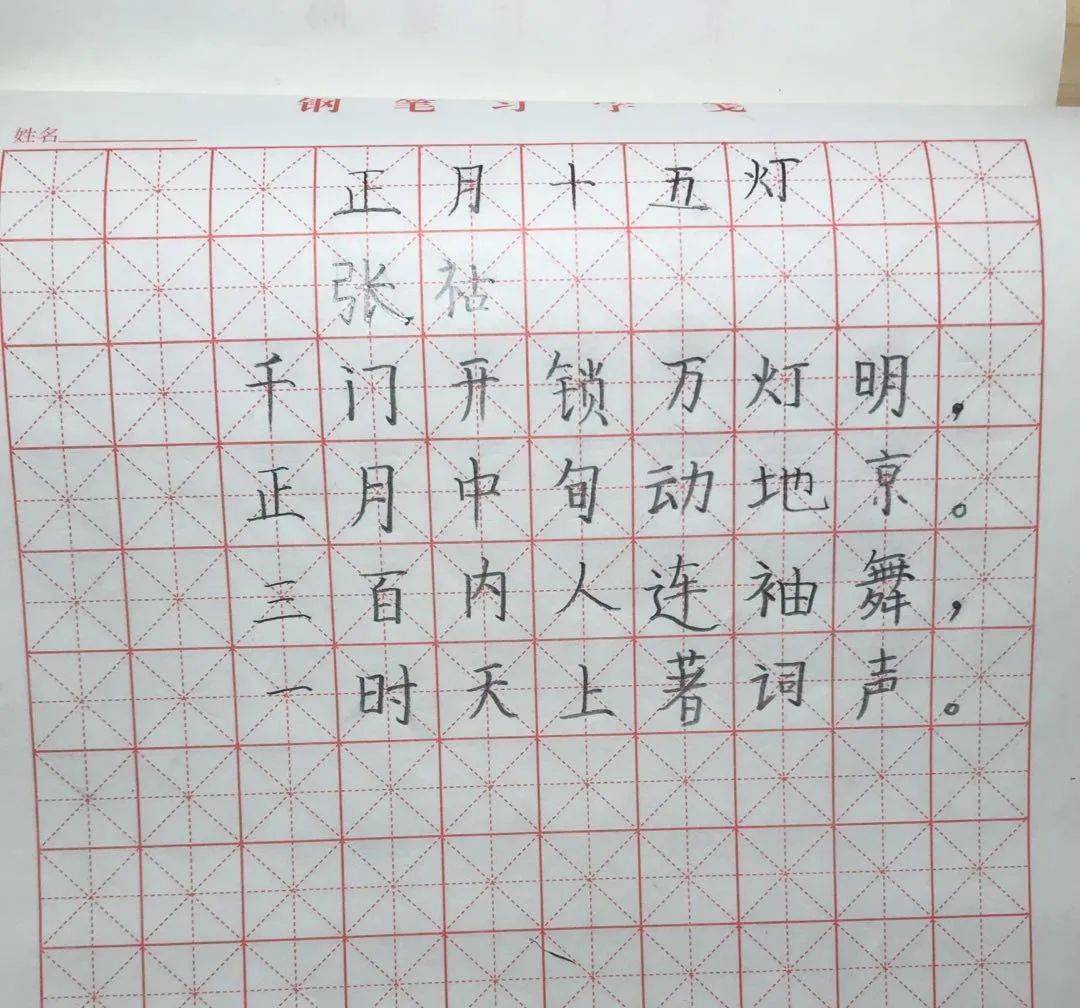 钢笔习字笺
姓名
正月十五灯
张祜
千门开锁万灯明，
正月中旬动地京。
三百内人连袖舞，
一时天上著词声。